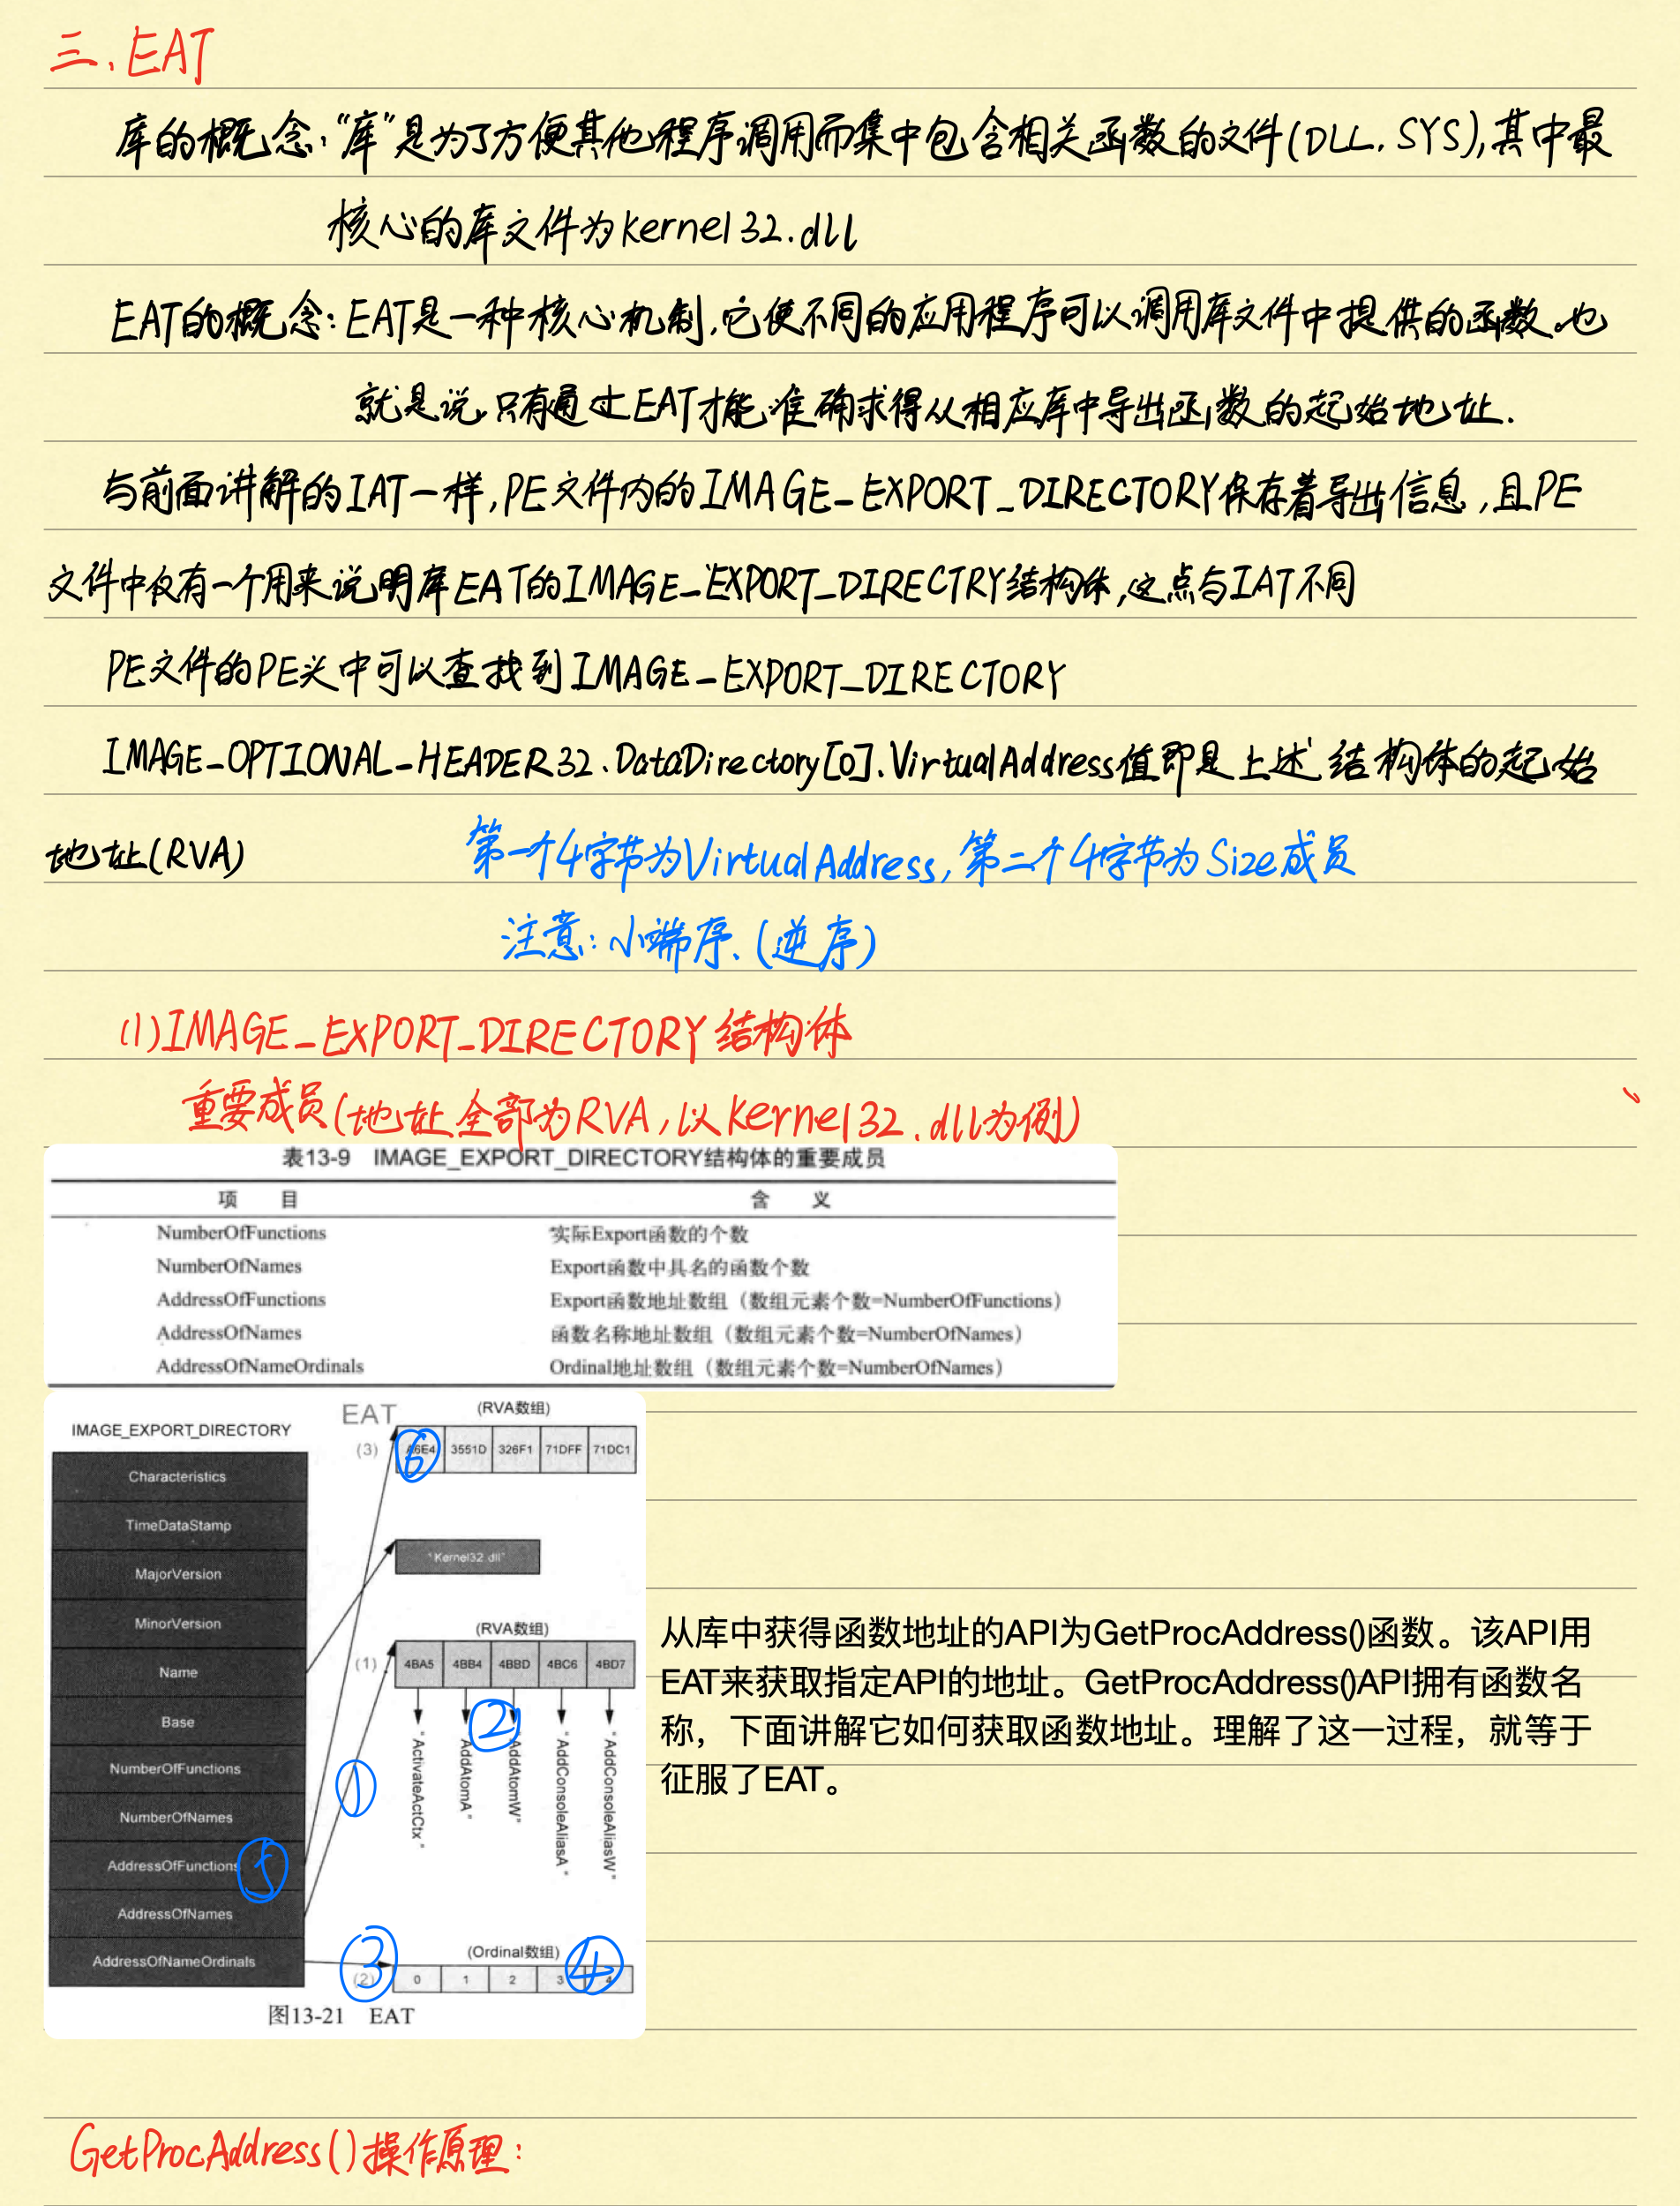 三、EAT
库的概念:“库”是为了方便其他程序调用而集中包含相关函数的文件(DLL,SYS),其中最
核心的库文件为kernel32.dll
EAT的概念:EAT是一种核心机制,它使不同的应用程序可以调用库文件中提供的函数,也
就是说,只有通过EAT才能准确求得从相应库中导出函数的起始地址.
与前面讲解的IAT一样,PE文件内的IMAGE_EXPORT_DIRECTORY保存着导出信息,且PE
文件中仅有一个用来说明库EAT的IMAGE_EXPORT_DIRECTRY结构体,这点与IAT不同
PE文件的PE头中可以查找到IMAGE_EXPORT_DIRECTORY
IMAGE_OPTIONAL_HEADER32.DataDirectory[0].VirtualAddress值即是上述结构体的起始
地址(RVA)
第一个4字节为VirtualAddress,第二个4字节为Size成员
注意:小端序、(逆序)
(1)IMAGE_EXPORT_DIRECTORY结构体
重要成员(地址全部为RVA,以Kernel32.dll为例)
表13-9 IMAGE_EXPORT_DIRECTORY结构体的重要成员
项 目 含 义
NumberOfFunctions 实际Export函数的个数
NumberOfNames Export函数中具名的函数个数
AddressOfFunctions Export函数地址数组(数组元素个数=NumberOfFunctions)
AddressOfNames 函数名称地址数组(数组元素个数=NumberOfNames)
AddressOfNameOrdinals Ordinal地址数组(数组元素个数=NumberOfNames)
IMAGE_EXPORT_DIRECTORY
Characteristics
TimeDataStamp
MajorVersion
MinorVersion
Name
Base
NumberOfFunctions
NumberOfNames
AddressOfFunctions ⑤
AddressOfNames
AddressOfNameOrdinals
EAT (RVA数组)
(3) A6E4 3551D 326F1 71DFF 71DC1
⑥
"Kernel32.dll"
(RVA数组)
(1) 4BA5 4BB4 4BBD 4BC6 4BD7
②
"ActivateActCtx"
"AddAtomA"
"AddAtomW"
"AddConsoleAliasA"
"AddConsoleAliasW"
①
(Ordinal数组)
③ ④
(2) 0 1 2 3 4
图13-21 EAT
从库中获得函数地址的API为GetProcAddress()函数。该API用
EAT来获取指定API的地址。GetProcAddress()API拥有函数名
称，下面讲解它如何获取函数地址。理解了这一过程，就等于
征服了EAT。
GetProcAddress()操作原理: